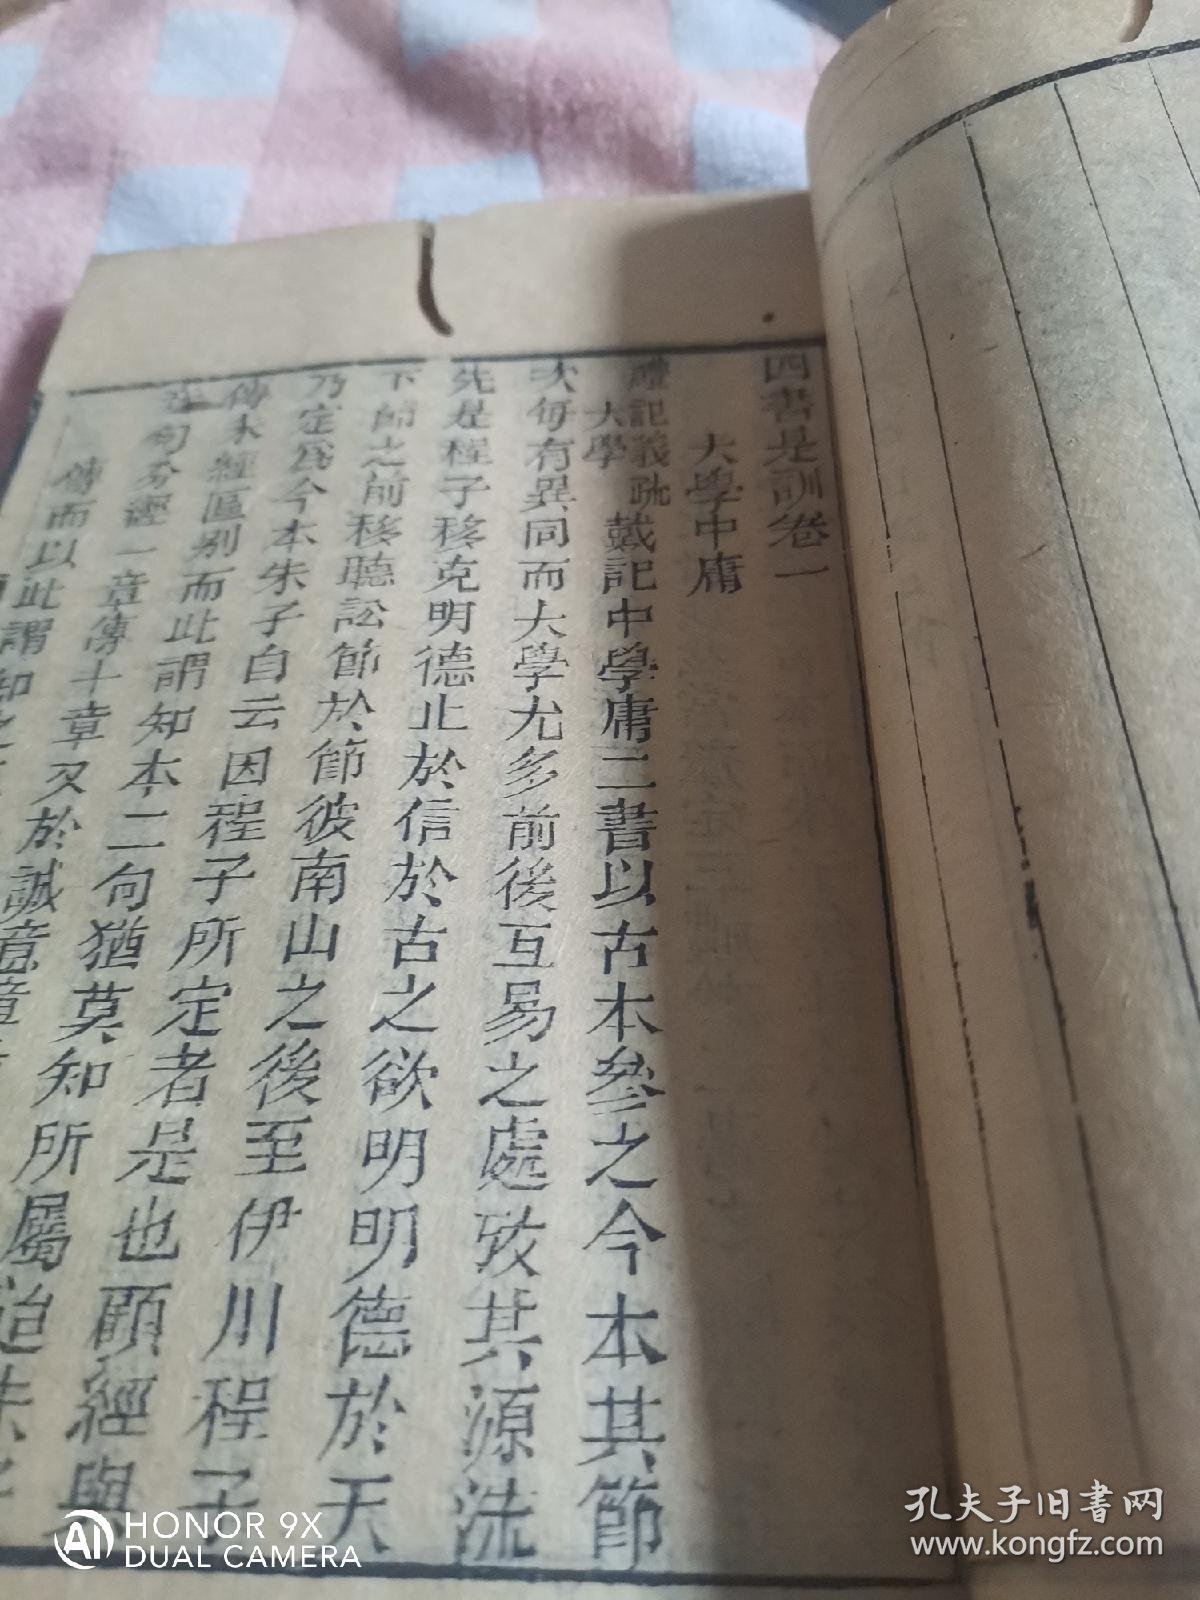 四書是訓卷一
大學中庸
禮記義疏
大學
戴記中學庸二書以古本參之今本其節
次每有異同而大學尤多前後互易之處攷其源流
先是程子移克明德止於信於古之欲明明德於天
下節之前移聽訟節於節彼南山之後至伊川程子
乃定爲今本朱子自云因程子所定者是也顧經與
傳本經區别而此謂知本二句猶莫知所屬迨朱子
句分經一章傳十章又於誠意章
傳而以此謂知之
HONOR 9X
DUAL CAMERA
孔夫子旧書网
www.kongfz.com